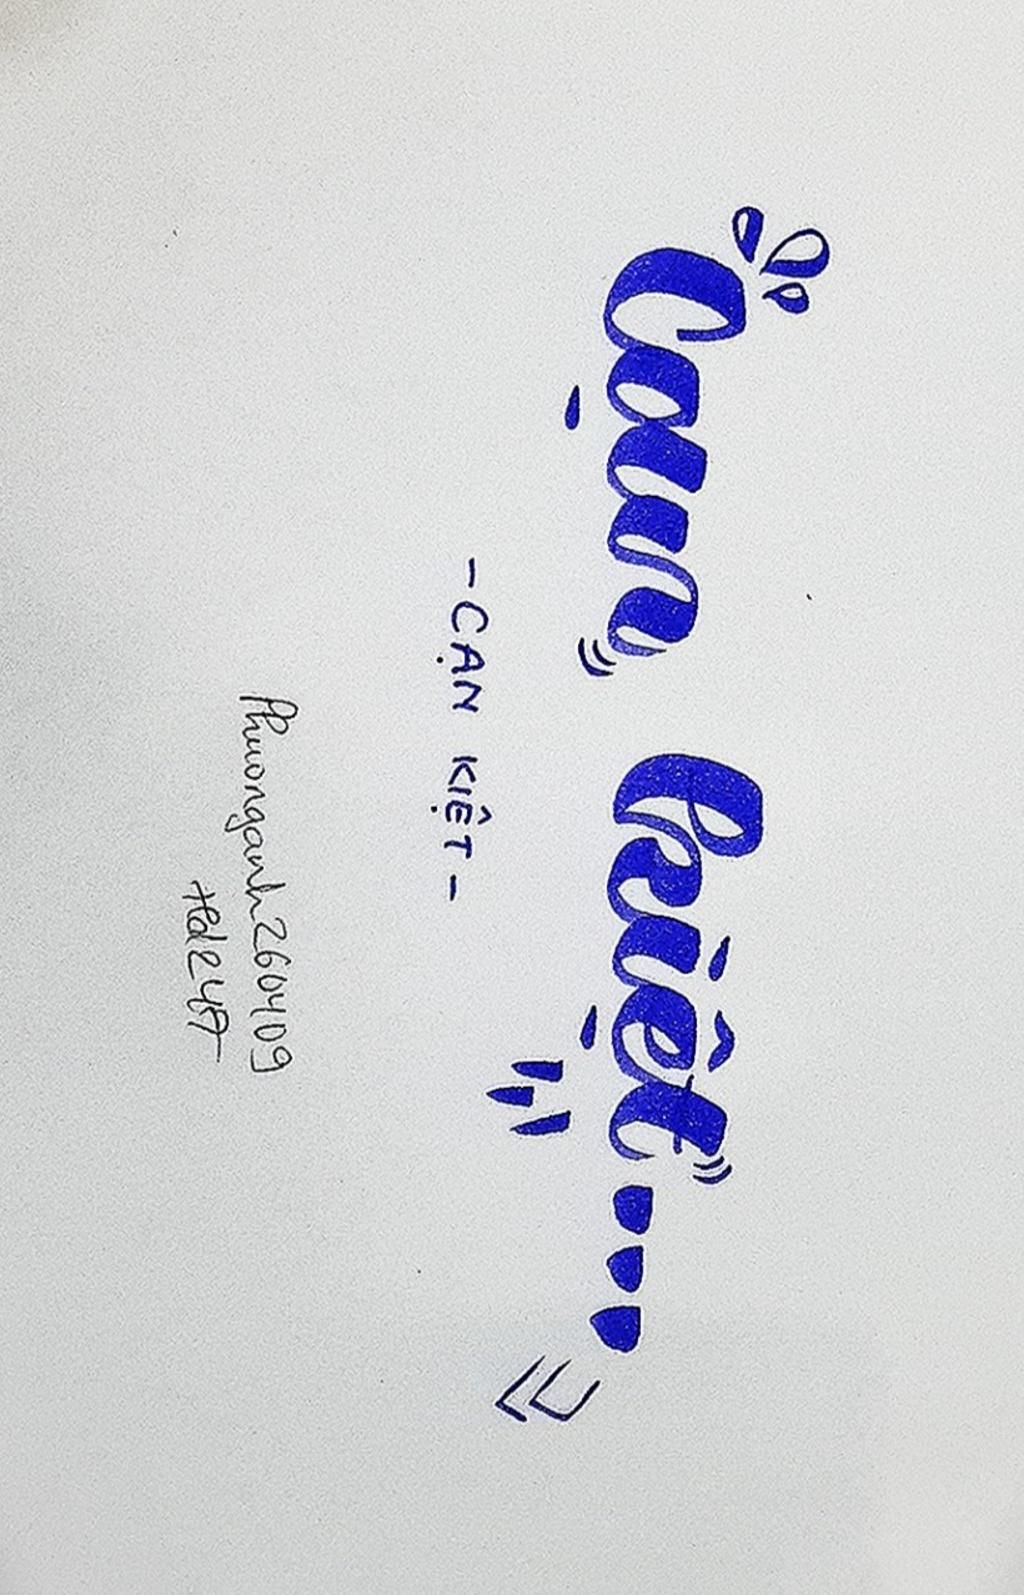 Cạn kiệt...
- CẠN KIỆT -
Phuonganh260409